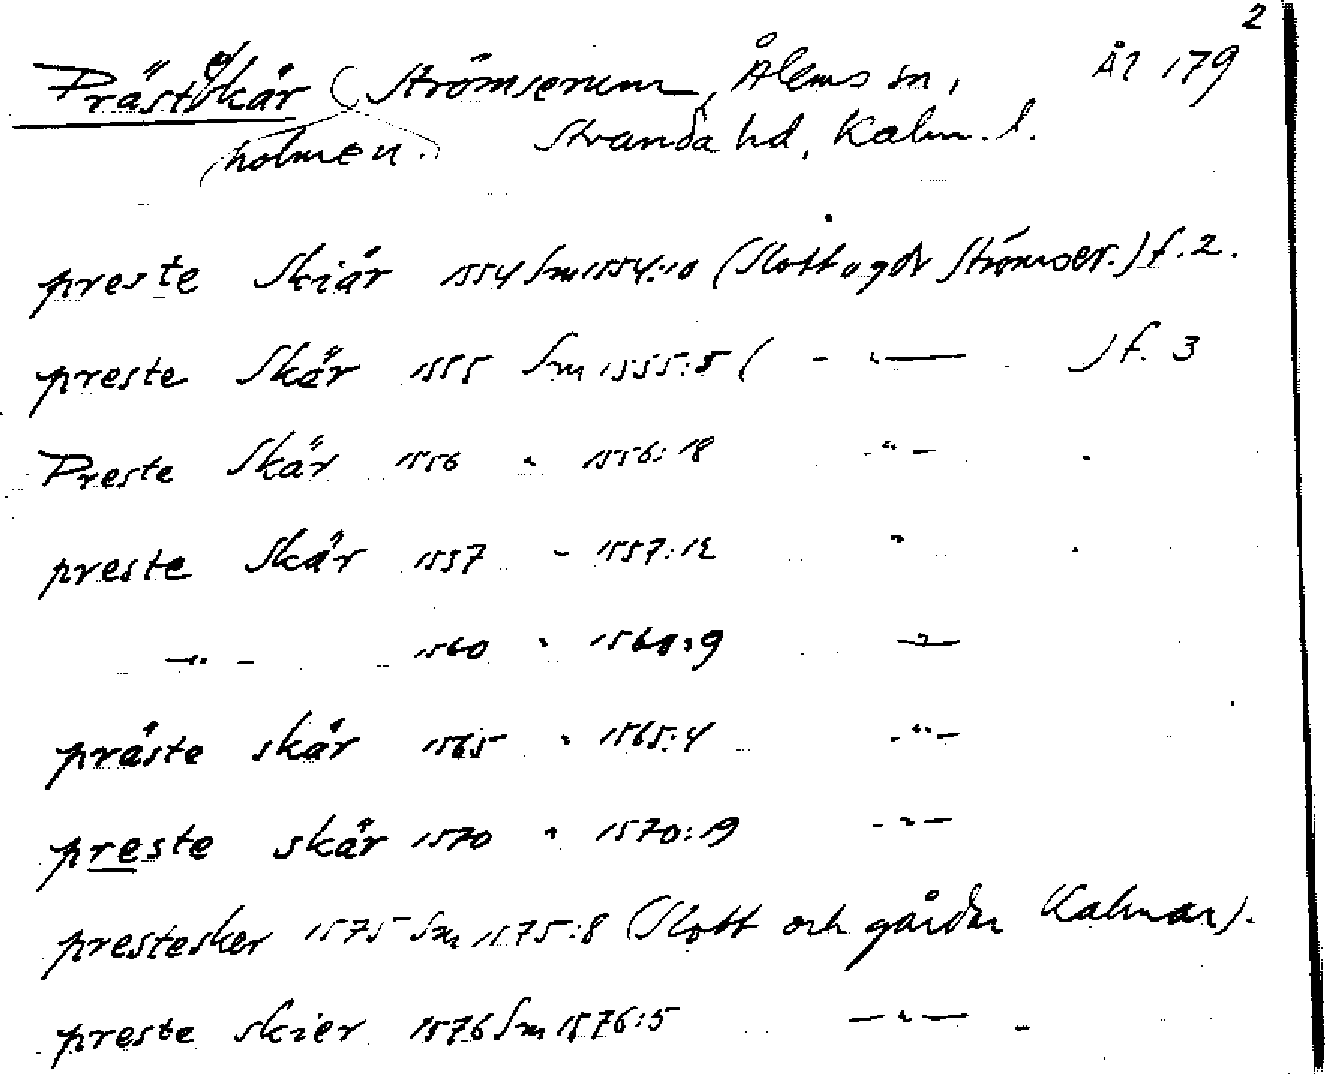 2
Prästskär (Strömserum, Ålems sn, Ål 179
(holmen.) Stranda hd, Kalm. l.
preste Skiär 1554 Sm 1554:10 (Slott o gdr Strömser.) f. 2.
preste Skär 1555 Sm 1555:5 ( - " — ) f. 3
Preste Skär 1556 " 1556:18 - " -
preste Skär 1557 - 1557:12 "
— " - 1560 " 1560:9 — " —
präste skär 1565 " 1565:4 - " -
preste skär 1570 " 1570:19 - " -
prestesker 1575 Sm 1575:8 (Slott och gårdar Kalmar).
preste skier 1576 Sm 1576:5 — " — -